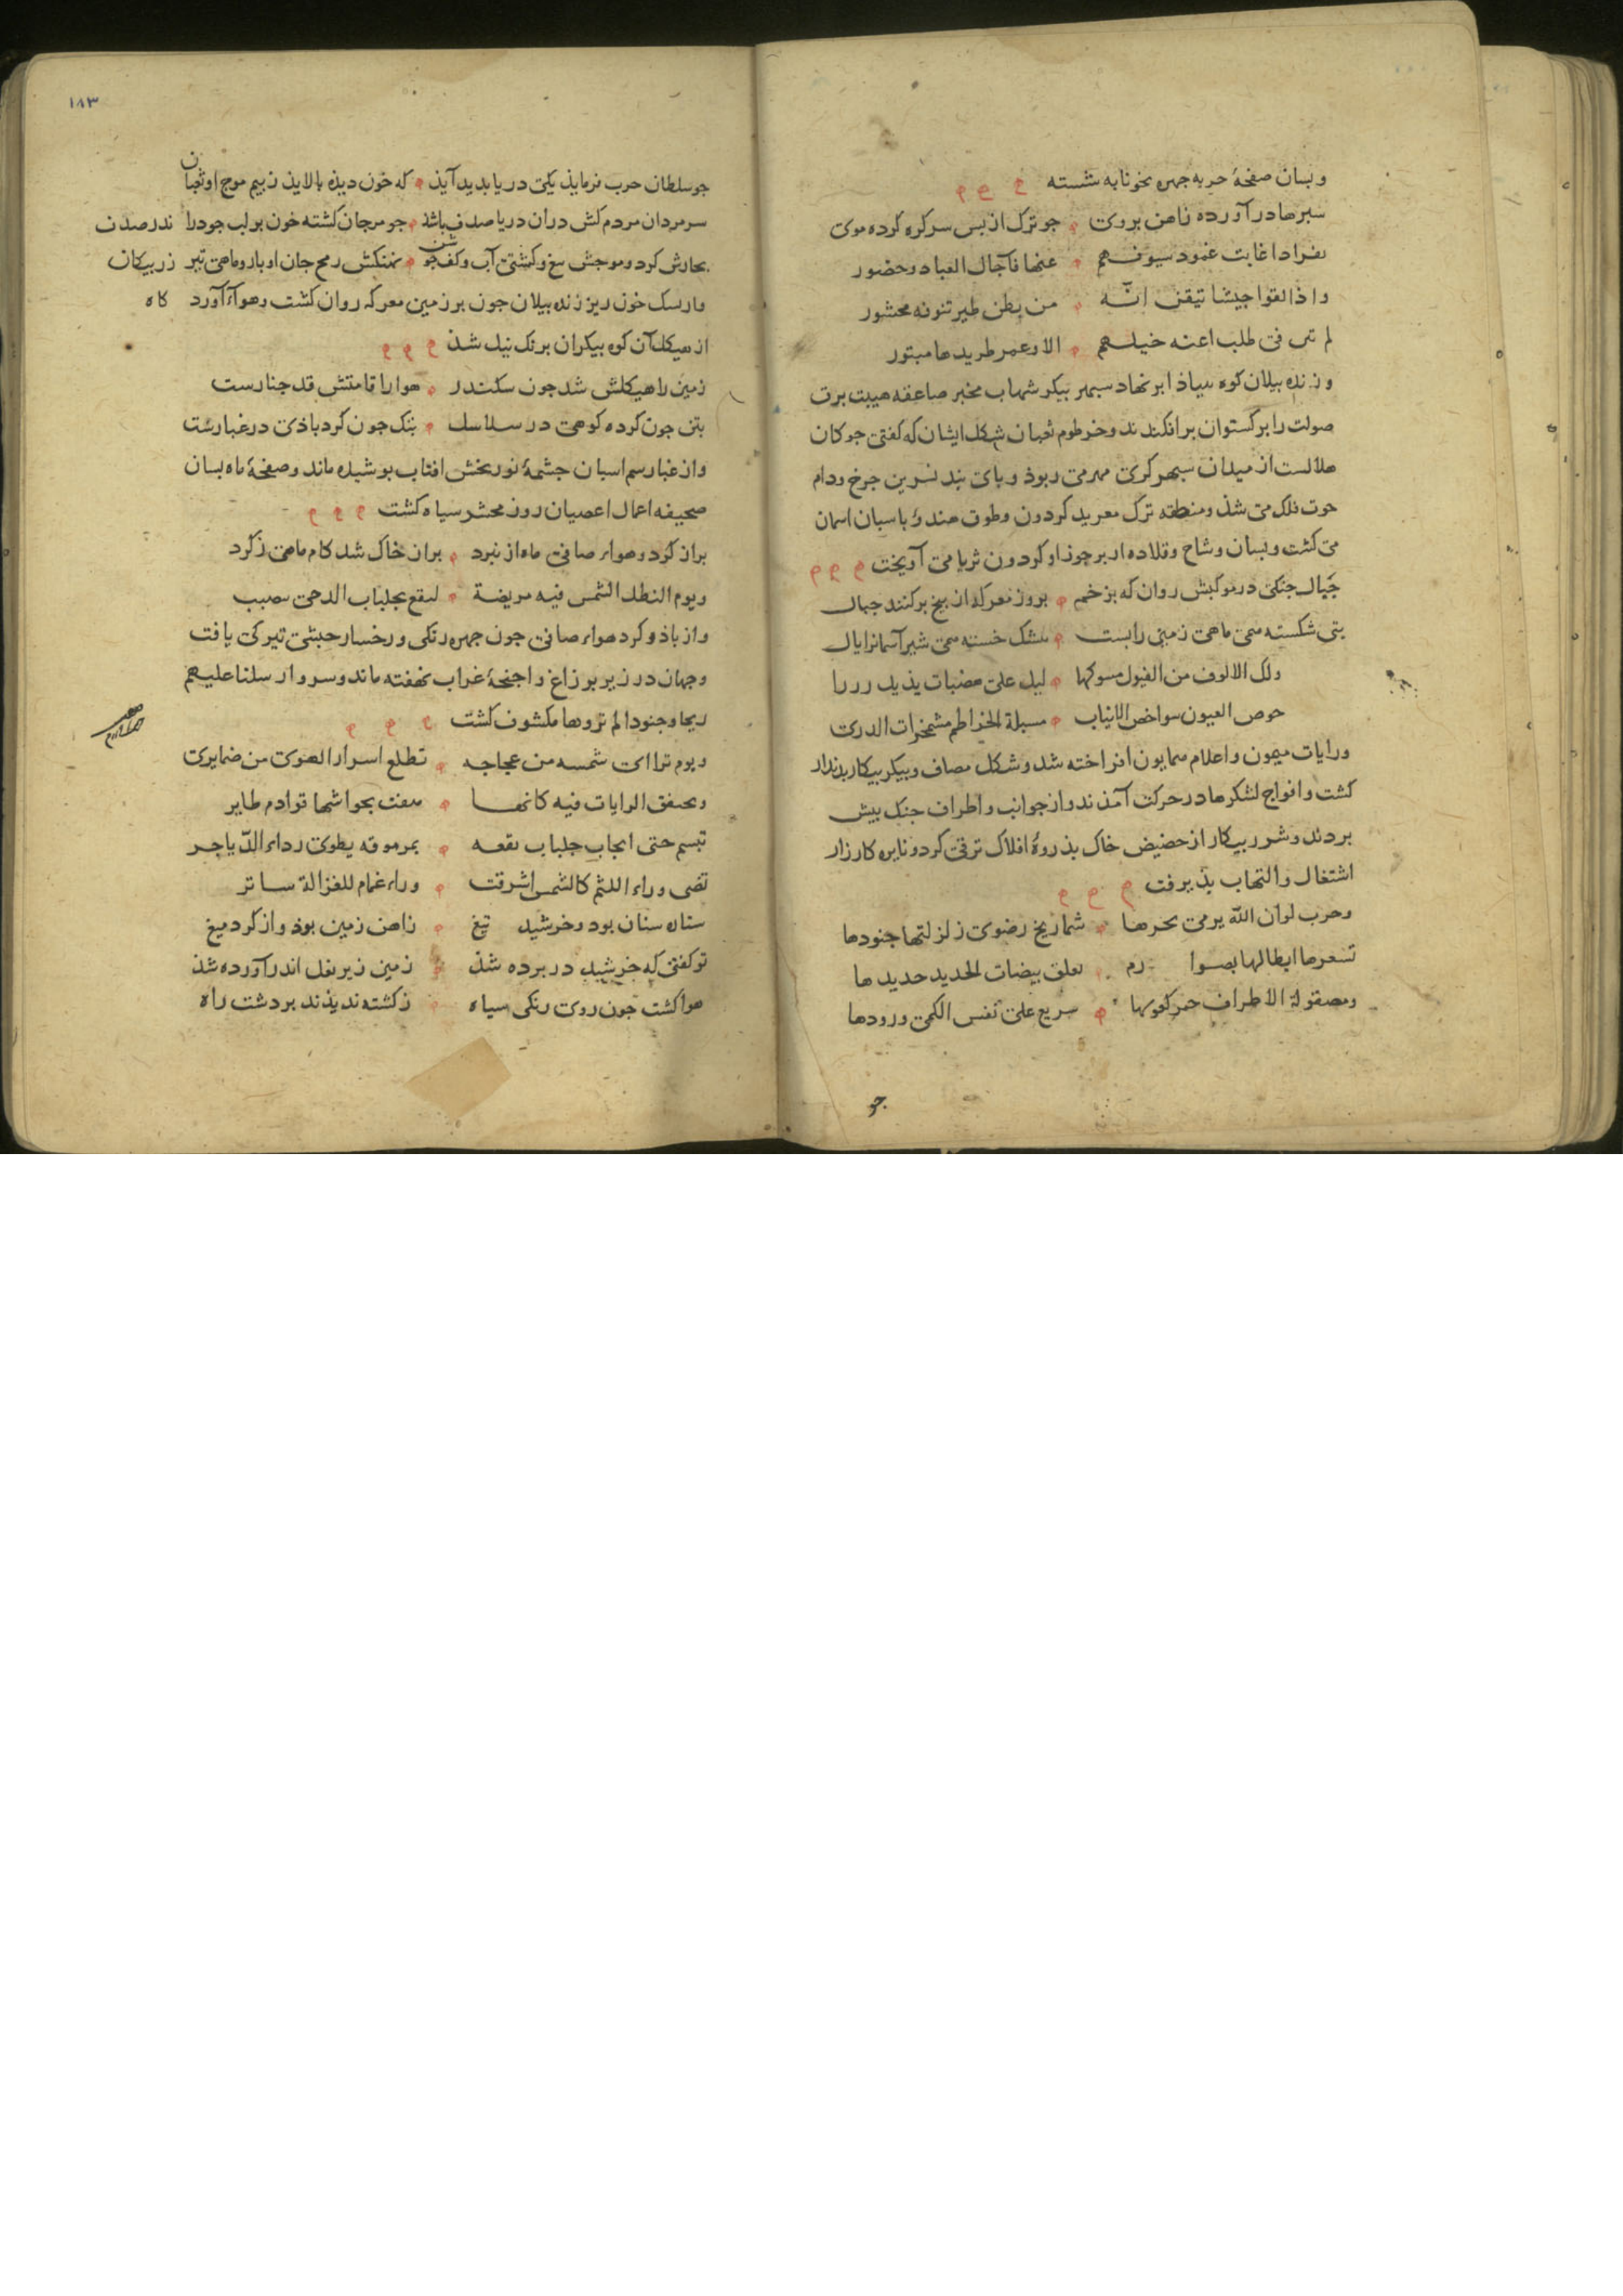 و بسان صفحهٔ حربه چهره بخونابه شسته
سبرها در آورده ز اهن بروی جو ترک از بس سر کره کرده موی
اذا غابت غمود سیوفهم عنها فآجال العباد حضور
واذا لقوا جیشا تیقن انّه من بطن طیر تنوفه محشور
لم فی طلب اعنه خیلهم الا وعمر طریدها مبتور
و زنده بیلان کوه بنیاذ ابر نهاد سبهر بیکر شهاب مخبر صاعقه هیبت برق
صولت را برکستوان برافکندند و خرطوم ثعبان شکل ایشان که کفتی جوکان
هلالست از میدان سبهر کری مهر می ربوذ و بای بند نسرین جرخ و دام
حوت فلک می شذ و منطقه ترک معربد کردون و طوق هندؤ باسبان اسمان
می کشت و بسان وشاح و قلاده از بر جوزا و کردون ثریا می آویخت
جبال جنکی در موکبش روان که بزخم بروز معرکه از بیخ برکنند جبال
بتی شکسته همی ماهی زمینی را بست بشک خسته همی شیر آسمانرا یال
ولک الالوف من الفیول مسوکها لیل علی هضبات یذبل
خوص العیون شواخص الانیاب مسبلة الخراطم مشمخرات الذری
و رایات میمون و اعلام همایون افراخته شد و شکل مصاف و بیکر بیکار بدیدار
کشت و افواج لشکرها در حرکت آمذند و از جوانب و اطراف جنک بیش
بردند و شرر بیکار از حضیض خاک بذروهٔ افلاک ترقی کرد و نایره کارزار
اشتعال و التهاب بذیرفت
وحرب لوان الله یرمی بحرها شماریخ رضوی زلزلتها جنودها
تسعرها ابطالها بصوارم تفلق بیضات الحدید حدیدها
ومصقولة الاطراف حمر کعوبها سریع علی نفس الکمی ورودها
جو
١٨٣
جو سلطان حرب فرمایذ یکی دریا بدید آیذ که خون دیده بالایذ ز بیم موج او ثعبان
سر مردان مردم کش دران دریا صدف باشذ جو مرجان کشته خون بر لب جو در اندر صدف
بخارش کرد و موجش تیغ و کشتی آب و کف جوشن نهنکش رمح جان اوبار و ماهی تیر زربیکان
و از سک خون ریز زنده بیلان جون بر زمین معرکه روان کشت و هواء آورد کاه
از هیکل آن کوه بیکران برنک نیل شذ
زمین را هیکلش شد جون سکندر هوا را قامتش قد جنارست
بتن جون کرده کوهی در سلاسل بتک جون کرد باذی در غبارست
و از غبار سم اسبان جشمهٔ نوربخش افتاب بوشیده ماند و صفحهٔ ماه بسان
صحیفه اعمال اعصیان روز محشر سیاه کشت
بر از کرد و هواء صافی ماه از نبرد بر ان خاک شد کام ماهی ز کرد
ویوم الشمس فیه مریضة لنقع بجلباب الدجی
و از باذ و کرد هواء صافی جون جهره زنکی و رخسار حبشی تیرکی یافت
و جهان در زیر بر زاغ و اجنحهٔ غراب نهفته ماند و سر و ارسلنا علیهم
ریحا و جنودا لم تروها مکشوف کشت
ویوم تراای شمسه من عجاجه تطلع اسرار الهوی من ضمایری
وتخفق الرایات فیه کانها بحواشیها قوادم طایر
تبسم حتی انجاب جلباب نقعه بمرموقه یطوی رداء الدیاجر
تضی وراء اللثم کالشمس اشرقت وراء غمام للغزالة ساتر
ستاره سنان بود و خرشید تیغ ز اهن زمین بوذ و از کرد میغ
تو کفتی که خرشید در برده شذ زمین زیر نعل اندر آورده شذ
هوا کشت جون روی زنکی سیاه ز کشته ندیذند بر دشت راه